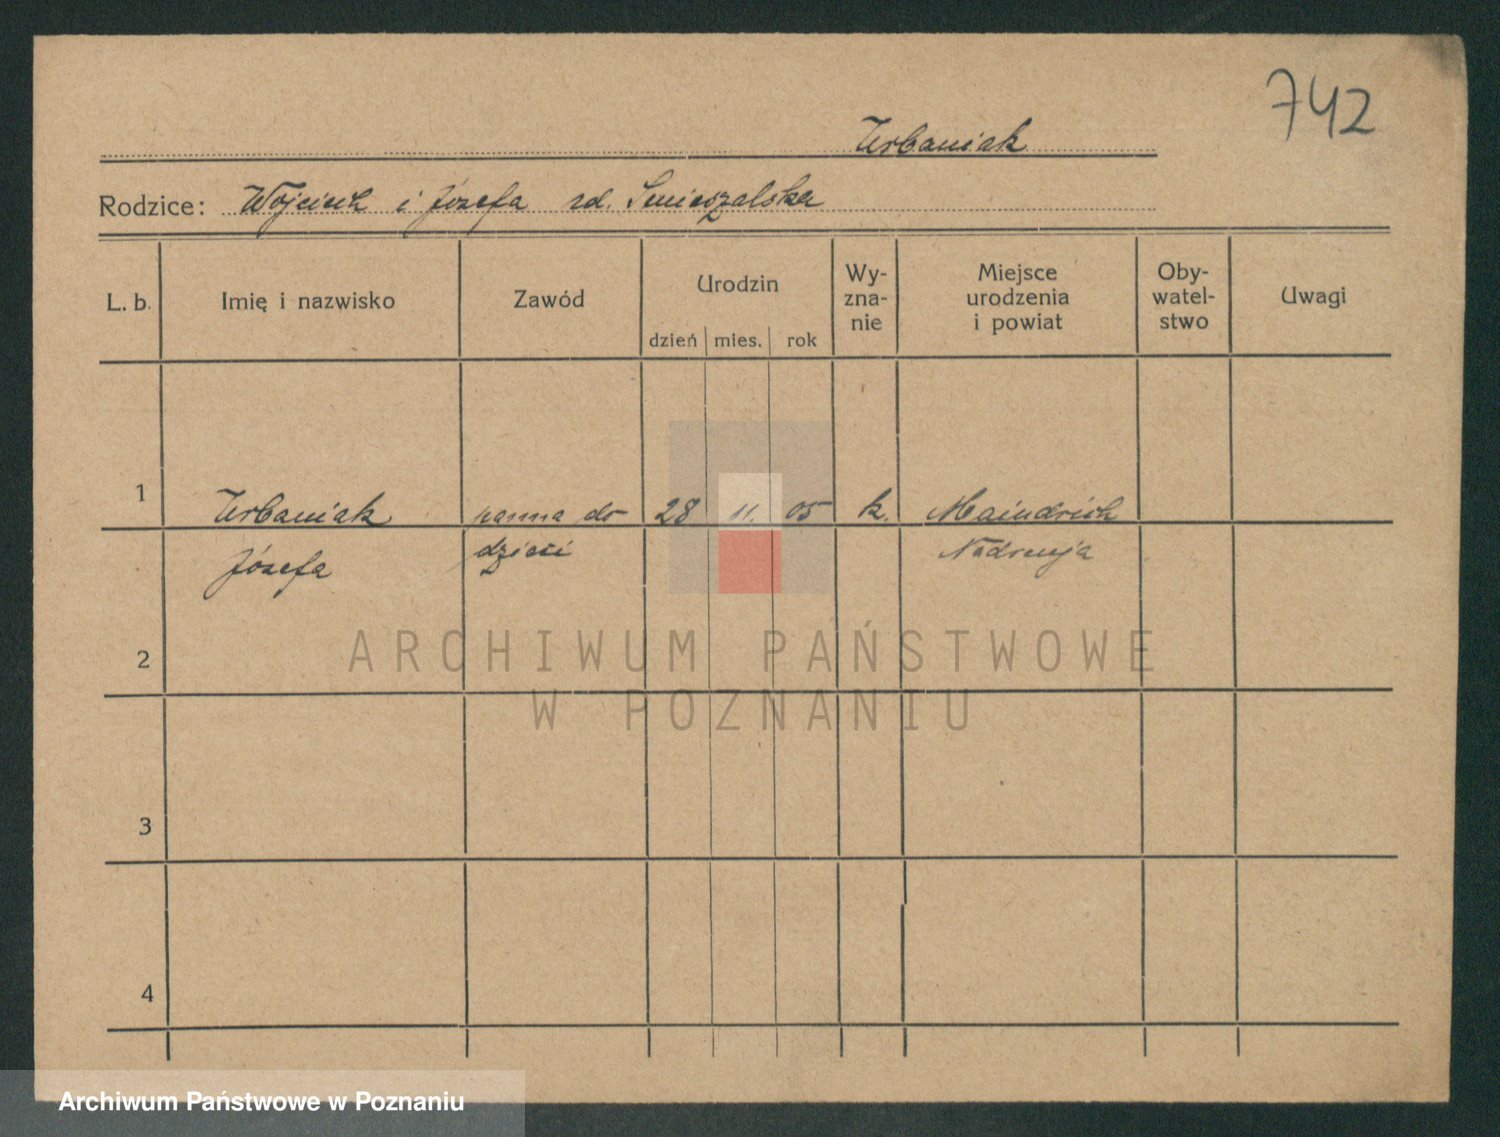 742
Urbaniak
Rodzice: Wojciech i Józefa zd. Smieszalska
L. b. Imię i nazwisko Zawód Urodzin Wy-zna-nie Miejsce urodzenia i powiat Oby-watel-stwo Uwagi
dzień mies. rok
1 Urbaniak panna do 28 11. 05 k. Maindrich
Józefa dzieci Nadrenja
2
ARCHIWUM PAŃSTWOWE
W POZNANIU
3
4
Archiwum Państwowe w Poznaniu